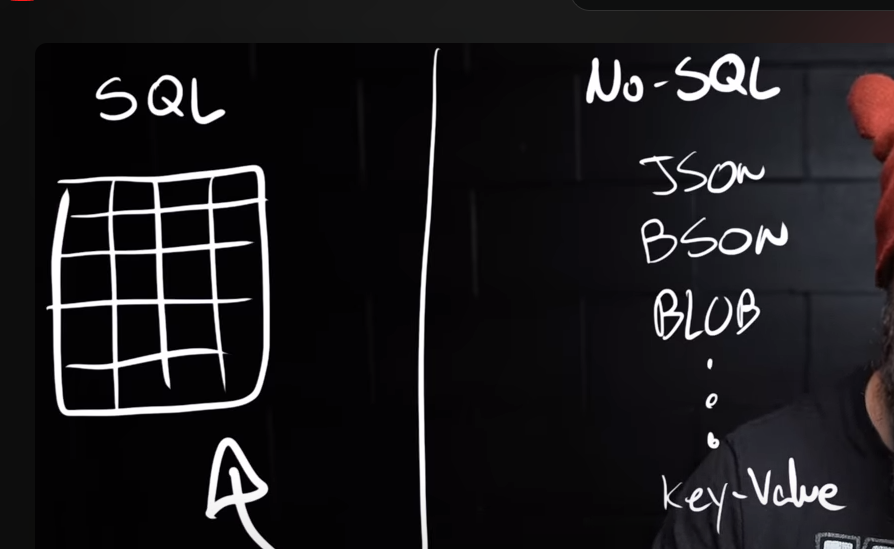 SQL
No-SQL
JSON
BSON
BLOB
Key-Value